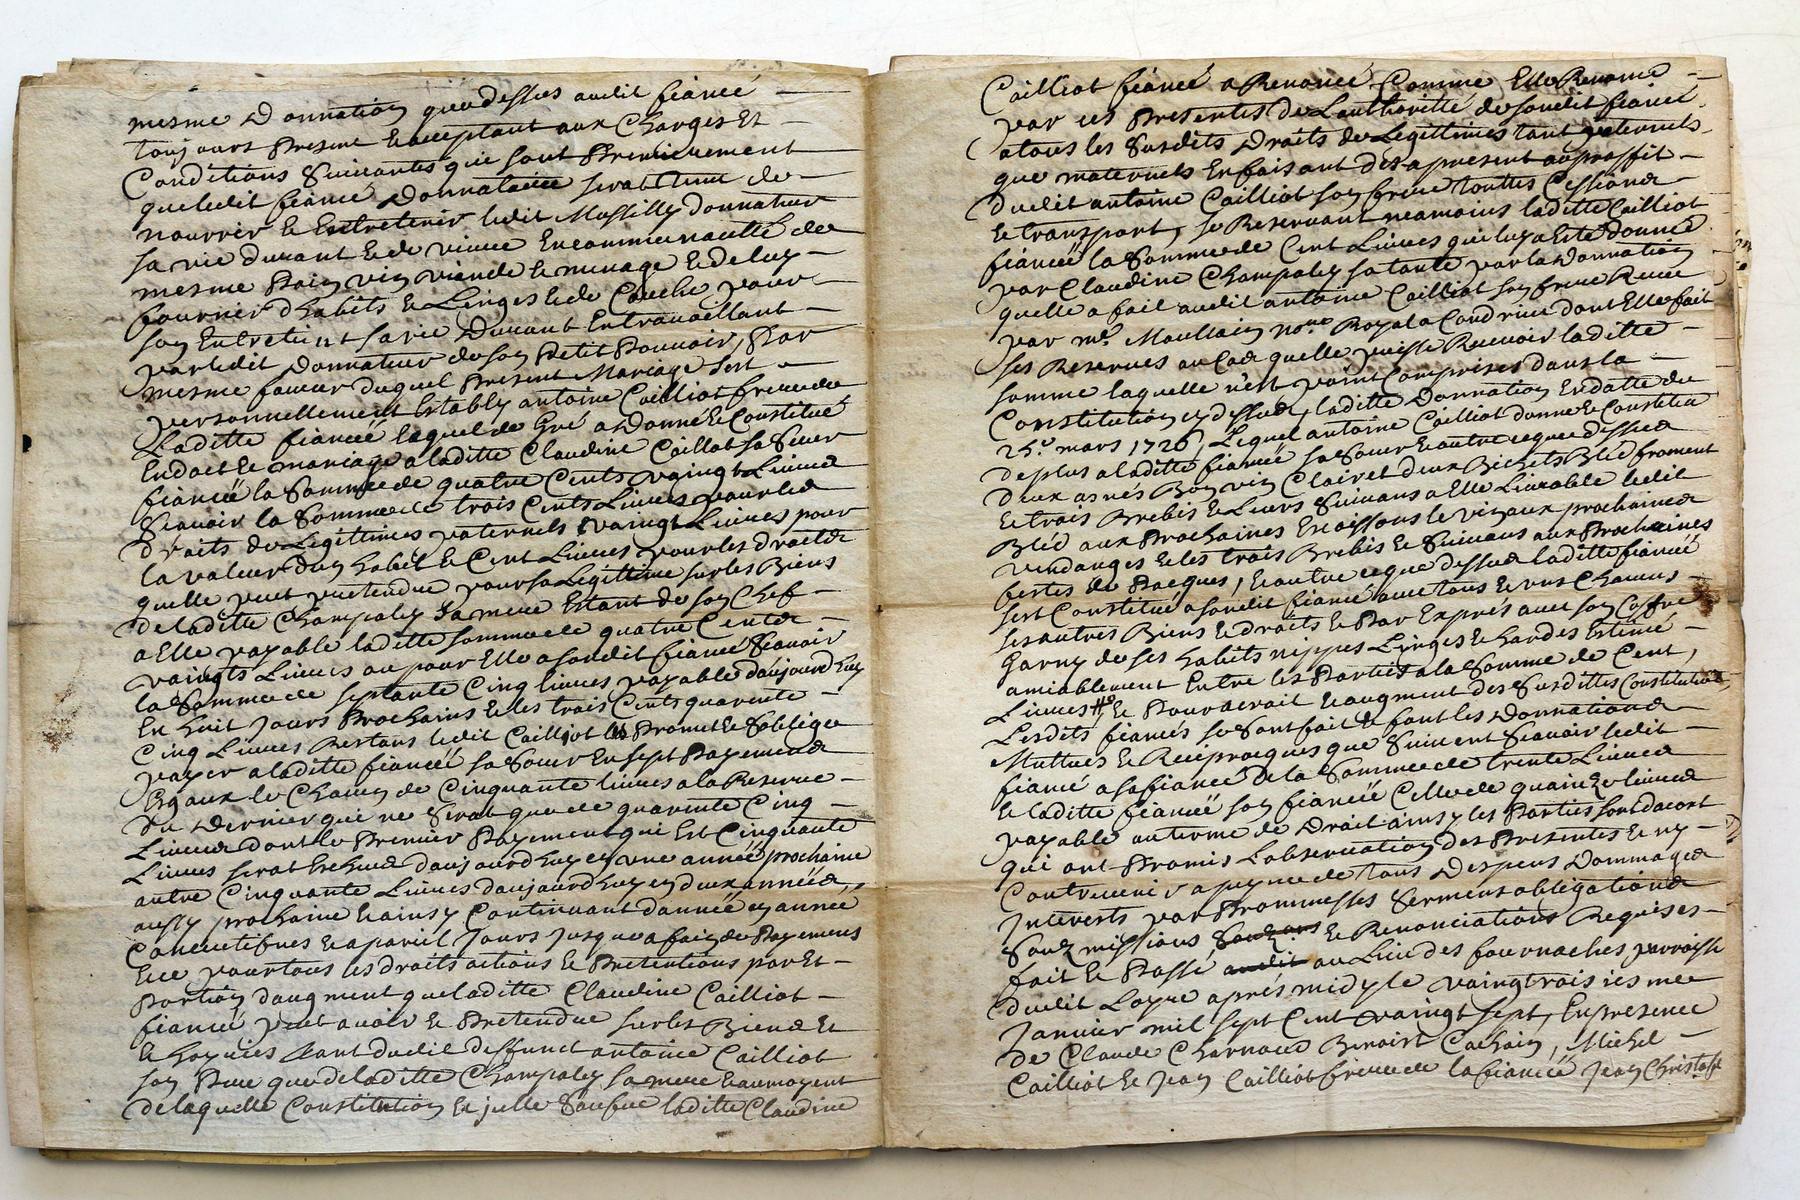 mesme Donnation que dessus audit fiancé
toujours Present Lacceptant aux Charges Et
Conditions Suivantes qui sont Premierement
que ledit fiancé Donnataire serat tenu de
nourrir Et Entretenir ledit Massilly donnateur
sa vie durant Et de vivre En communaulté de
mesme Pain vin viande Et menage Et de luy
fournir d'habits Et Linges Et de Couche pour
son Entretient sa vie Durant En travaillant
par ledit Donnateur de son Petit Pouvoir, Par
mesme faveur duquel Present Mariage sest
personnellement Establÿ antoine Cailliot frere de
Laditte fiancéé Lequel de Gré a Donné Et Constitué
En dot Et mariage a laditte Claudine Caillot sa Sœur
fiancéé la Somme de quatre Cents vaingt Livres
Scavoir la Somme de trois Cents Livres pour les
droits de Legittimes paternels vaingt Livres pour
la valeur dun habit Et Cent Livres pour les droits
quelle peut pretendre pour sa Legittime sur les Biens
de laditte Champaley sa mere Estant de son Chef
a Elle payable laditte somme de quatre Cents
vaingts Livres ou pour Elle a sondit fiancé Scavoir
la Somme de septante Cinq livres payable daujourdhuy
En huit Jours Prochains Et les trois Cents quarente
Cinq Livres Restans ledit Cailliot Promet Et Soblige
payer a laditte fiancéé sa Sœur En sept Payements
Egaux le Chacun de Cinquante livres a la Reserve
du Dernier qui ne Serat que de quarente Cinq
Livres dont le Premier Payement qui Est Cinquante
Livres serat daujourdhuy en une annéé prochaine
autre Cinquante Livres daujourdhuy en deux années
aussy prochaine Et ainsy Continuant dannéé en année
Consecutifves Et a pareil Jours jusques a fain de Payemens
Et ce pour tous les droits actions Et Pretentions part Et
Portion daugment que laditte Claudine Cailliot
fiancéé peut avoir Et Pretendre sur les Biens Et
hoyries tant dudit deffunct antoine Cailliot
son Pere que de laditte Champaley sa mere Et aumoyent
de laquelle Constitution Et jcelle Saufve laditte Claudine
Cailliot fiancéé a Renoncé Comme Elle Renonce
par ces Presentes de Lauthorité de sondit fiancé
a tous les Susdits Droits de Legittimes tant paternels
que maternels En faisant des a present au proffit
dudit antoine Cailliot son frere touttes Cessions
Et transport, se Reservant neamoins laditte Cailliot
fiancéé la Somme de Cent Livres qui luy a Esté donné
par Claudine Champaley sa tante par la Donnation
quelle a fait audit antoine Cailliot son frere Receue
par me Moullain nore Royal a Condrieu dont Elle fait
ses Reserves au Cas quelle puisse Recevoir laditte
somme laquelle n'est point Comprises dans la
Constitution cy dessus, laditte Donnation En datte du
25e mars 1726, Lequel antoine Cailliot donne Et Constitue
de plus a laditte fiancéé sa Sœur Et autre ce que dessus
Deux asnés Bon vin Clairet deux Bichets Bled froment
Et trois Brebis Et Leurs Suivans a Elle Livrable ledit
Bled aux Prochaines Moissons le vin aux prochaines
vendanges Et les trois Brebis Et Suivans aux Prochaines
festes de Pacques, Et autre ce que dessus laditte fiancéé
sest Constitué a sondit fiancé avec tous Et uns Chacuns
ses autres Biens Et droits Et Par Exprés avec son Coffre
Garny de ses habits nippes Linges Et hardes Estimé
amiablement Entre les Parties a la Somme de Cent
Livres Et Pourderoit Et augment des Susdittes Constitutions
Lesdits fiancés se Sont fait Et font les Donnations
Muttues Et Reciproques que Suivent Scavoir ledit
fiancé a sa fiancéé de la Somme de trente Livres
Et laditte fiancéé son fiancéé Celle de quainze livres
payable au terme de Droit ainsy les Parties sont dacort
qui ont Promis Lobservation des Presentes Et ny
Contrevenir a peyne de tous Despens Dommages
Interests par Prommesses Serments obligations
Soubmissions Et Renonciations Requises
fait Et Passé audit au Lieu des fournaches parroisse
dudit Loyre aprés midy le vaingtroisiesmee
Janvier mil sept Cent vaingt sept, En presence
de Claude Charnaud Benoist Cachain, Michel
Cailliot Et Jean Cailliot frere de la fiancéé Jean Christoph